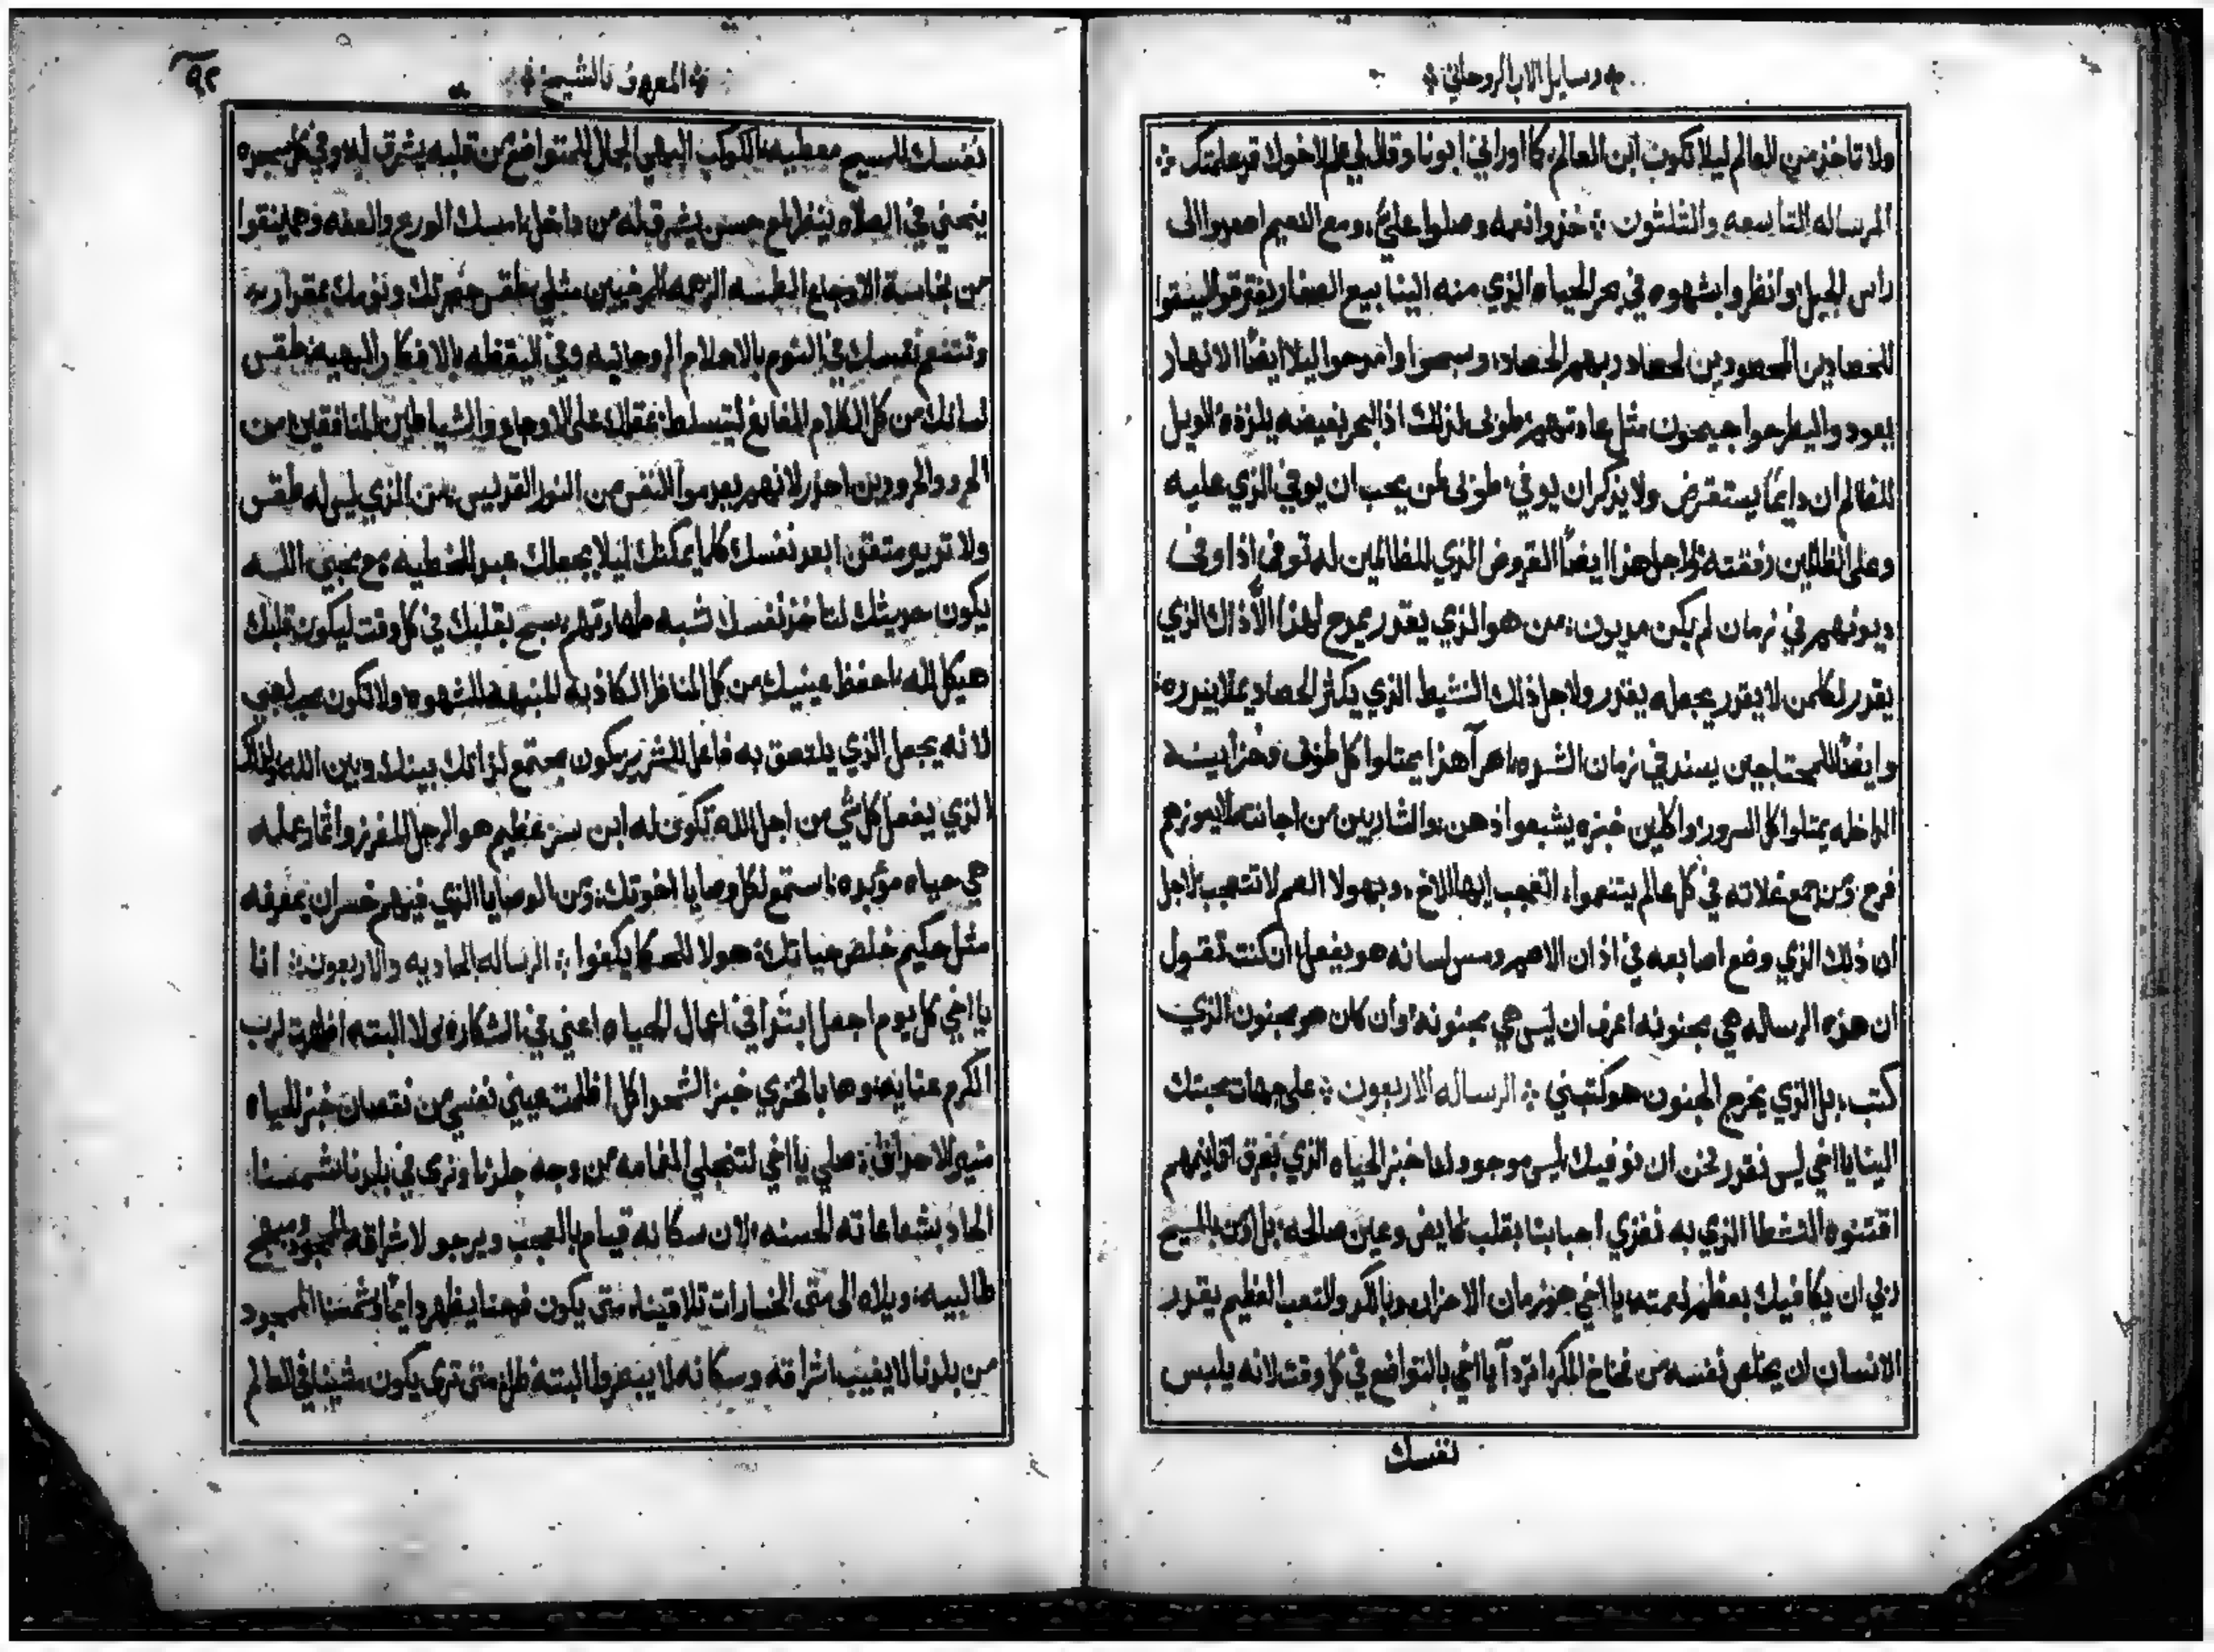 رسايل الاب الروحاني
ولا تاخذ من العالم ليلا تكون ابن العالم كما اوراني ابونا وقال لي علم لاخوك قد علمتك
الرساله التاسعه والثلثون خذوا نعمه وصلوا علي ومع النسيم اصعدوا الى
راس الجبل وانظروا بشهوه في بحر الحياه الذي منه الينابيع الصغار يفترقوا ليسقوا
للحصادين المسعودين لحصاد ربهم الحصاد وسبحوا وامرحوا ليلا ايضا الانهار
يعودوا ليطرحوا جيحون مثل عادتهم طوبى لذلك اذ البحر بفيضه يلذذه الويل
للظالم ان دايما يستقرض ولا يذكر ان يوفي طوبى لمن يحب ان يوفي الذي عليه
وعلى الظالمين رفقته ولاجل هذا ايضا القروض الذي للظالمين له توفى اذا وفى
ديونهم في زمان لم يكن مديون من هو الذي يقدر يمدح لهذا الا ذاك الذي
يقدر لكلمن لا يقدر يجعله يقدر ولاجل ذلك النشيط الذي يكثر الحصاد يملا بيدره
وايضا للمحتاجين يسند في زمان الشده اهرآ هذا يمتلوا كل طوبى وخزاينه
الداخله يمتلوا كل السرور واكلين خبزه يشبعوا دهن والشاربين من اجانته لا يعوزهم
فرح ومن جمع غلاته في كل عالم يتنعموا اتعجب ايها الاخ وبهولا العم لا تتعجب لاجل
ان ذلك الذي وضع اصابعه في اذان الاصم ومس لسانه هو يفعل ان كنت تقول
ان هذه الرساله هي مجنونه اعرف ان ليس هي مجنونه وان كان هو مجنون الذي
كتب بل الذي يخرج الجنون هو كتبني الرساله الاربعون على جهات محبتك
الينا يا اخي ليس نقدر نحن ان نوفيك ليس موجود لنا خبز الحياه الذي بعرق اقاليمهم
اقتنوه النشطا الذي به نغذي احبابنا بقلب فايض وعين صالحه بل اومن بالمسيح
ربي ان يكافيك بعظم نعمته يا اخي جوز زمان الاحزان وبالكد والتعب العظيم يقدر
الانسان ان يخلص نفسه من فخاخ المكر اتردآ يا اخي بالتواضع في كل وقت لانه يلبس
نفسك
المعروف بالشيخ
٩٢
نفسك المسيح معطيه الكوكب البهي الحال المتواضع من قلبه يشرق ليلا وفي كل سجده
ينحني في الصلاه ينظر لمع حسن يشرق له من داخل امسك الورع والعفه وهم ينقوا
من نجاسة الاوجاع الطمسه الزهمه المرخيين مثلي طقس حنجرتك ونومك بمقدار
وتتنعم نفسك في النوم بالاحلام الروحانيه وفي اليقظه بالافكار البهيه طقس
لسانك من كل الكلام الفارغ ليتسلط عقلك على الاوجاع والشياطين المنافقين من
الحرد والحرودين احذر لانهم يعدموا النفس من النور القدسي من الذي ليس له طقس
ولا تربيه متقن ابعد نفسك كلما يمكنك ليلا يجعلك عبد الخطيه مع محبي الله
يكون حديثك لتاخذ نفسك شبه طهارتهم سبح بقلبك في كل وقت ليكون قلبك
هيكل الله احفظ عينيك من كل المناظر الكاذبه المنبهه للشهوه ولا تكون صبر لصبي
لانه يجعل الذي يلتصق به فاعل للشر يريكون مجتمع لذاتك بينك وبين الله ولذلك
الذي يفعل كل شي من اجل الله تكون له ابن سر عظيم هو الرجل المفرز واثمار عمله
هي حياه مؤبده استمع لكل وصايا اخوتك ومن الوصايا الذي فيهم خسران بمعرفه
مثل حكيم خلص حياتك هولا للحكما يكفوا الرساله الحاديه والاربعون انا
يا اخي كل يوم اجعل ابتدا في اعمال الحياه اعني في الشكاره ولا البته اظهرت لرب
الكرم عنايه وها بالخزي خبز الشحوا كل اظلمت عيني نفسي من نقصان خبز الحياه
منير الاحداق صلي يا اخي لتنجلي الغمامه من وجه جلدنا ونرى في بلدنا شمسنا
الحاد بشعاعاته الحسنه لان سكانه قيام بالعجب ويرجوا لاشراقه الممجود مبهج
طالبيه ويلاه الى متى الخسارات تلاقينا متى يكون فهمنا يظهر دايما وشمسنا الممجود
من بلدنا لا يغيب اشراقه وسكانه لا يبصروا البته ظل متى ترى يكون مشينا في العالم